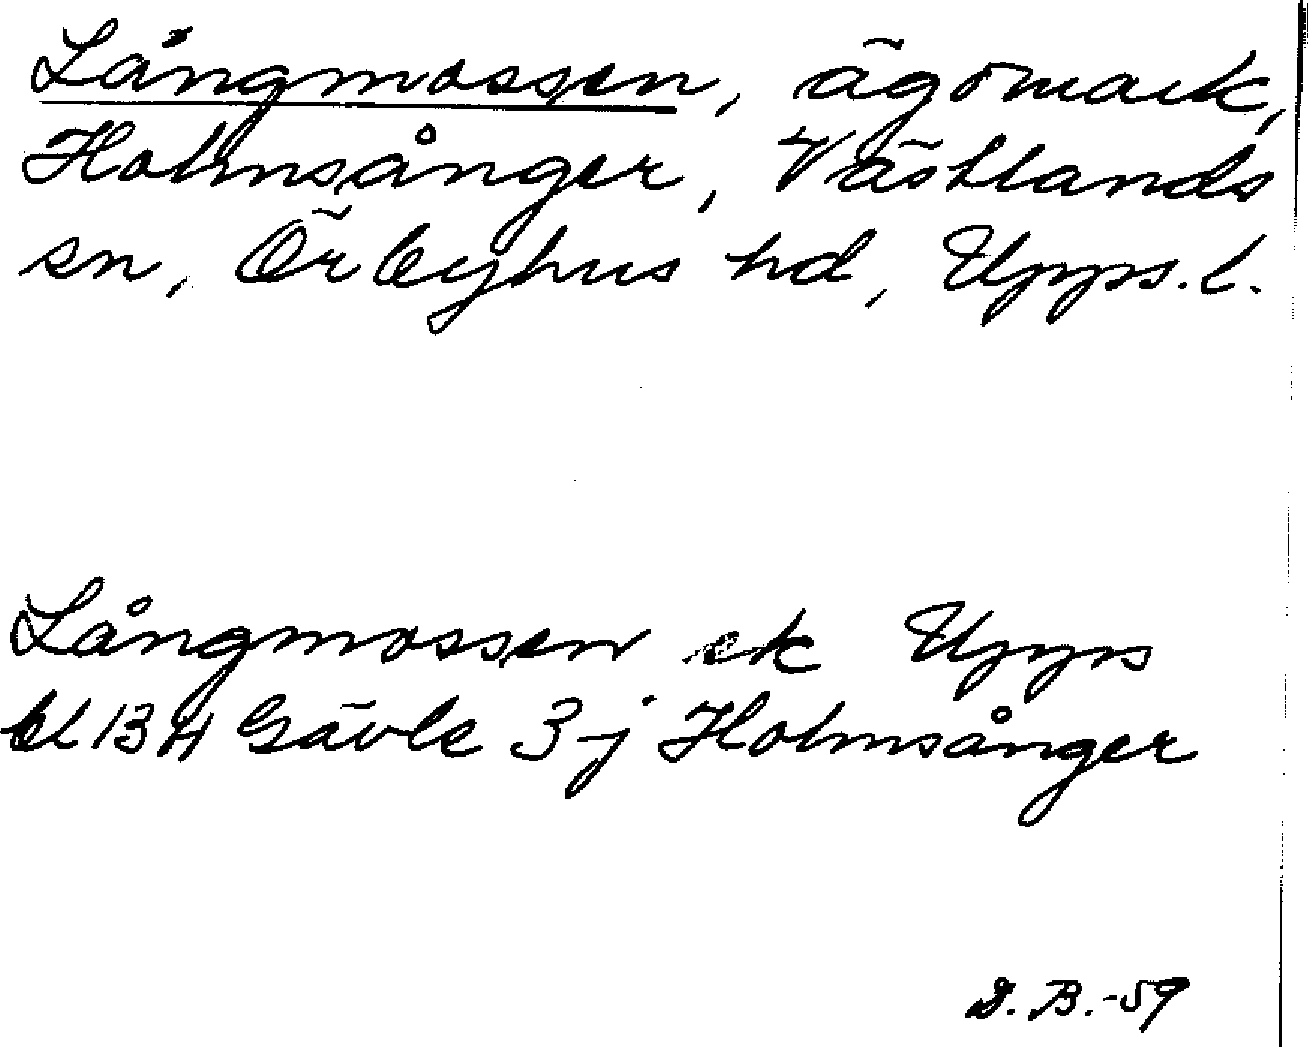 Långmossen, ägomark,
Holmsånger, Västlands
sn, Örbyhus hd, Upps. l.
Långmossen ek Upps
bl 134 Gävle 3 j Holmsånger
D. B. -59